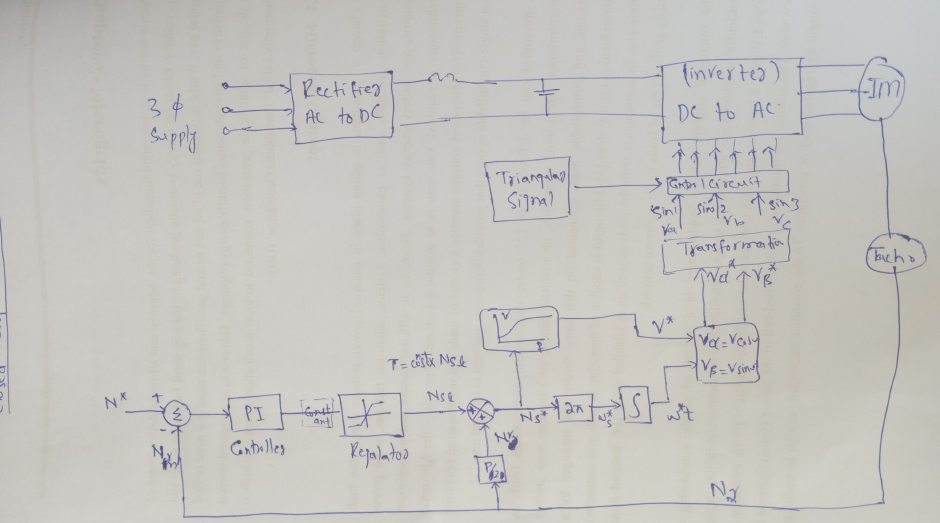 3 ϕ
Supply
Rectifier
AC to DC
(inverter)
DC to AC
IM
Triangular
Signal
Control Circuit
Sin1
Sin 2
Sin 3
Va
Vb
Vc
Transformation
Vα*
Vβ*
Tacho
V
V*
Vα = Vcosω
Vβ = Vsinω
T = const x Nsl
N*
+
-
Σ
PI
Controller
Const
ant
Regulator
Nsl
+
+
Ns*
2π
ws*
∫
w*t
Nr
Nr